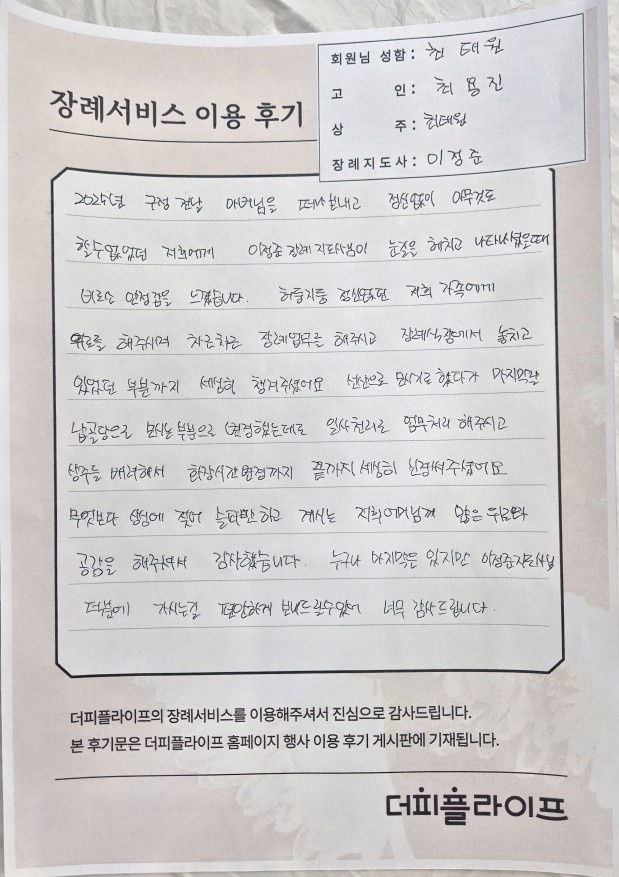 장례서비스 이용 후기
회원님 성함 : 최태원
고 인 : 최용진
상 주 : 최태원
장례지도사 : 이정준
2025년 구정 전날 아버님을 떠나보내고 정신없이 아무것도
할수없었던 저희에게 이정준 장례지도사님이 눈길을 헤치고 나타나셨을때
비로소 안정감을 느꼈습니다. 허둥지둥 정신없던 저희 가족에게
위로를 해주시며 차근차근 장례업무를 해주시고 장례식장에서 놓치고
있었던 부분까지 세심히 챙겨주셨어요 선산으로 모시기로 했다가 마지막날
납골당으로 모시는부분으로 변경했는데도 일사천리로 업무처리 해주시고
상주들 배려해서 화장시간변경까지 끝까지 세심히 신경써주셨어요
무엇보다 상심에 젖어 슬퍼만하고 계시는 저희어머님께 많은 위로와
공감을 해주셔서 감사했습니다. 누구나 마지막은 있지만 이정준지도사님
덕분에 가시는길 편안하게 보내드릴수있어 너무 감사드립니다.
더피플라이프의 장례서비스를 이용해주셔서 진심으로 감사드립니다.
본 후기문은 더피플라이프 홈페이지 행사 이용 후기 게시판에 기재됩니다.
더피플라이프